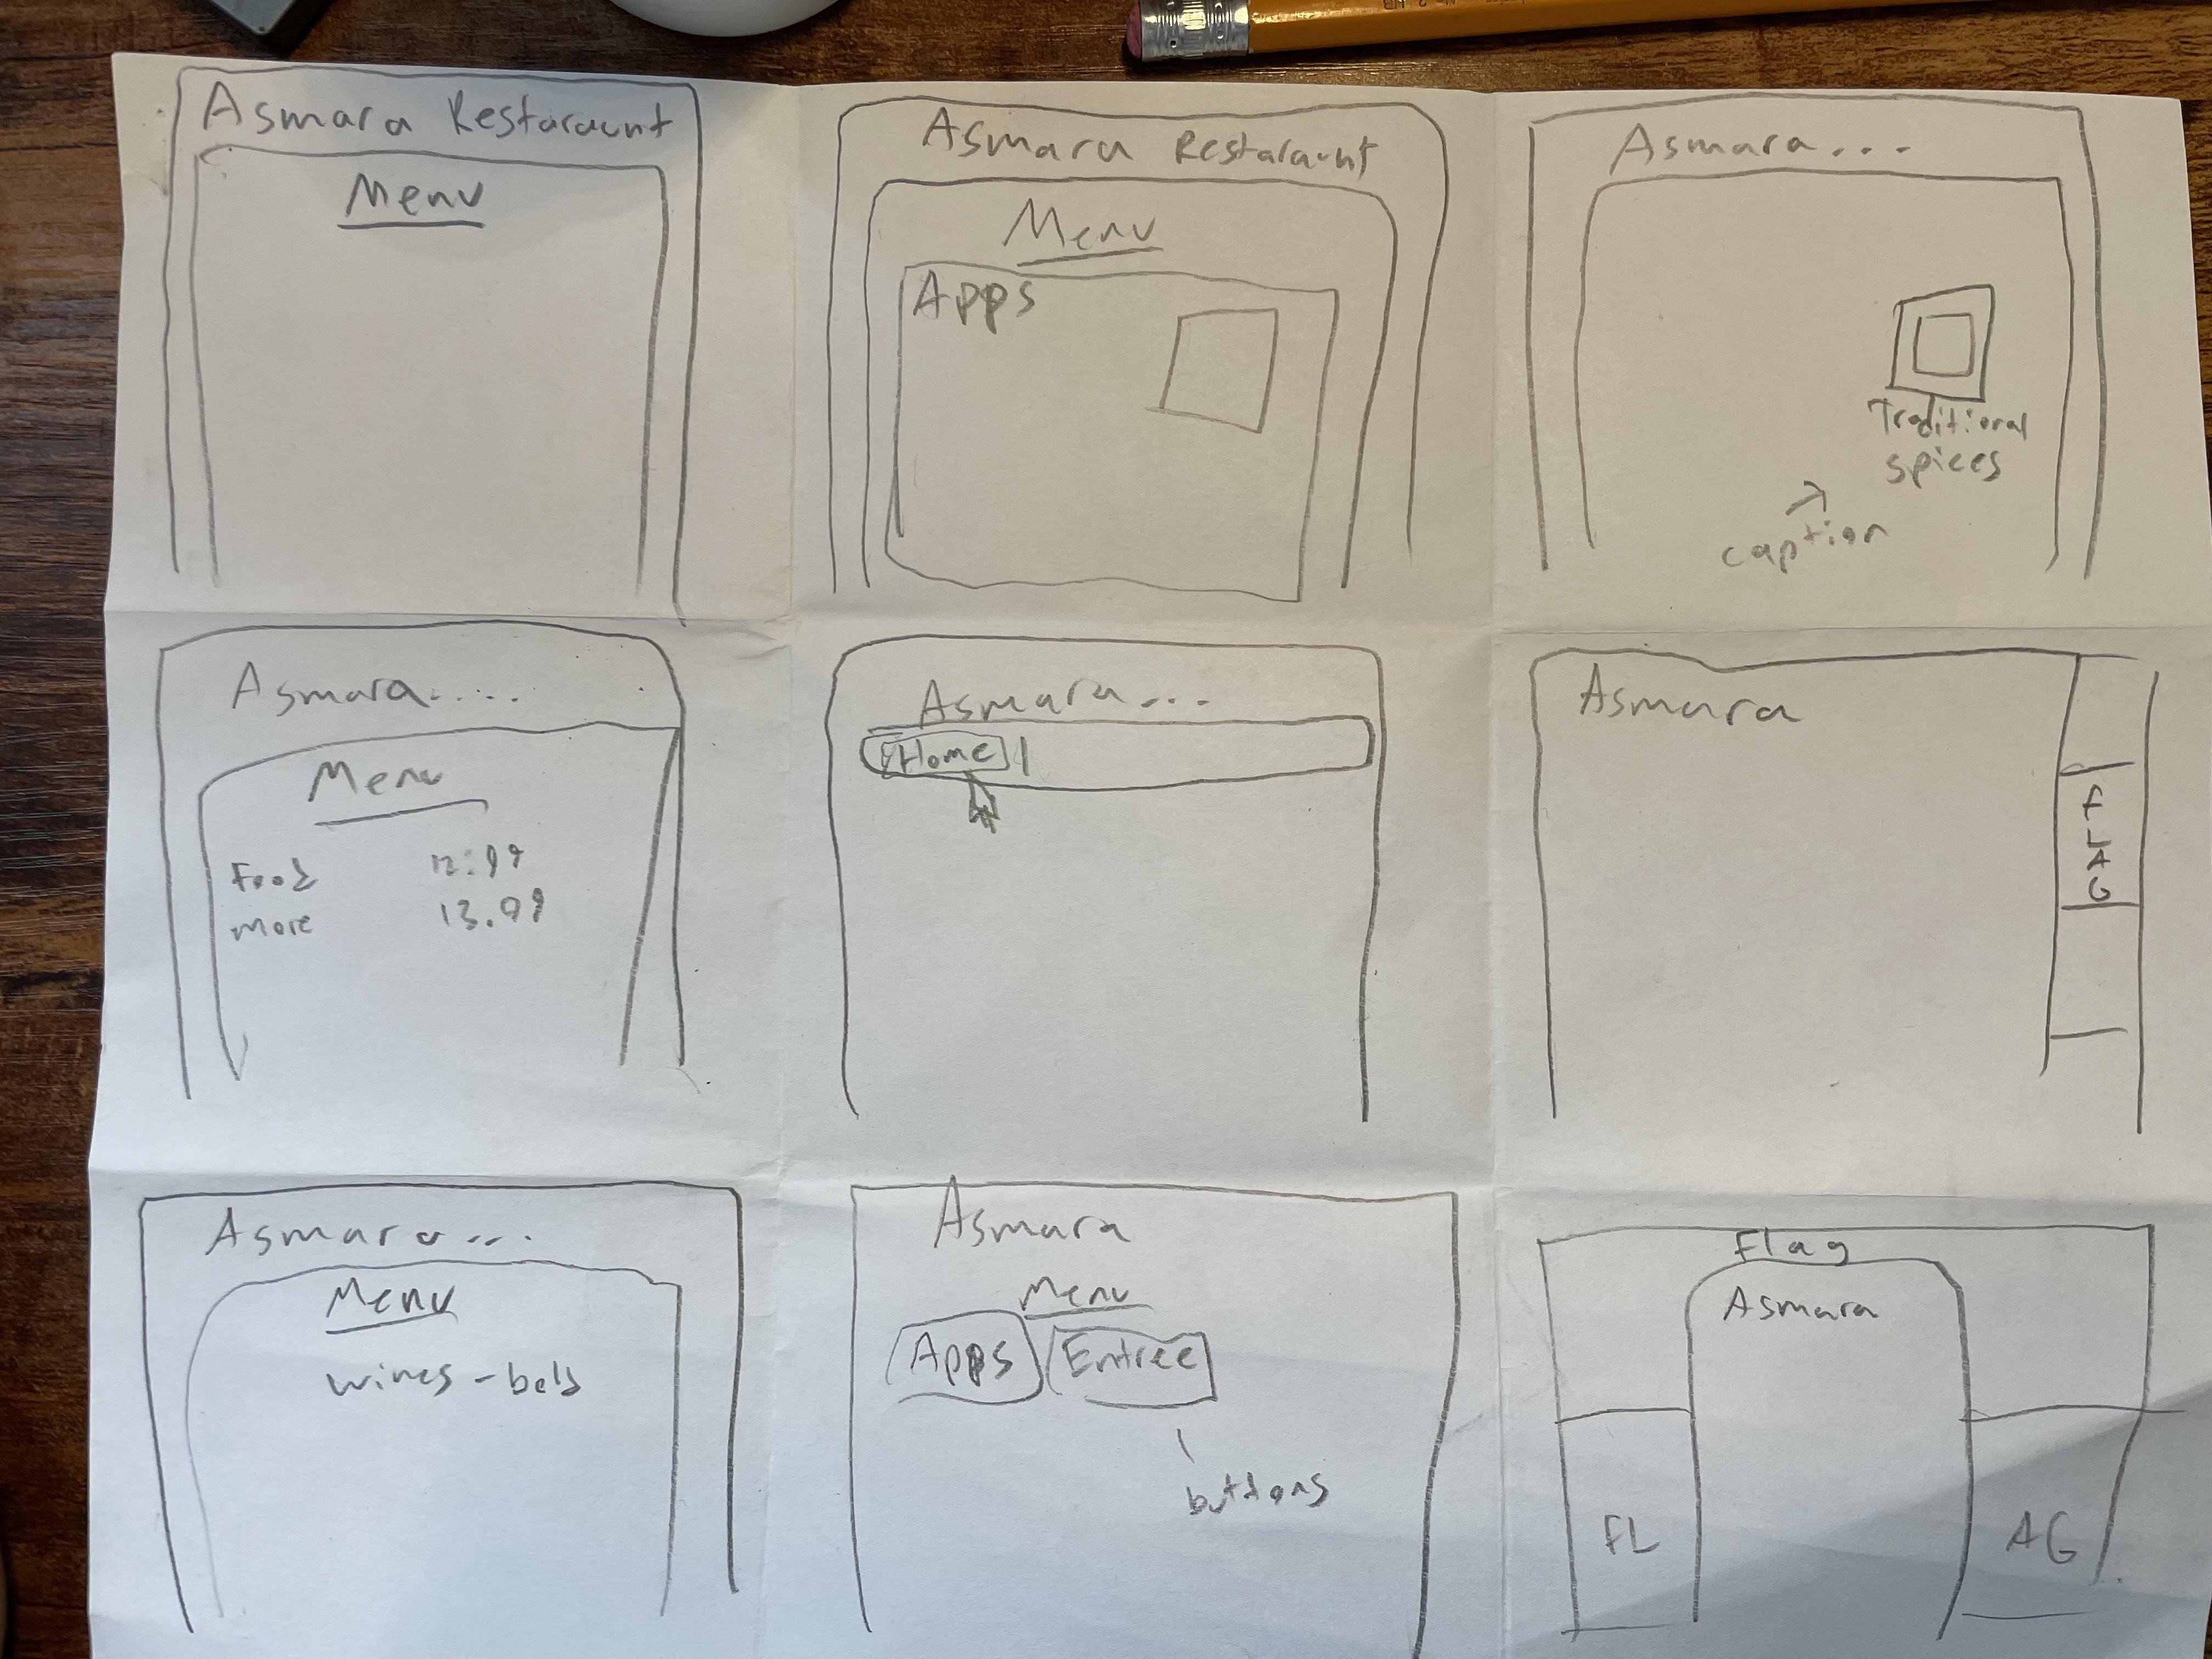 Asmara Restaraunt
Menu
Asmara Restaraunt
Menu
Apps
Asmara...
Traditional
spices
caption
Asmara.....
Menu
Food 12.99
more 13.99
Asmara...
Home
Asmara
FLAG
Asmara...
Menu
wines -
Asmara
Menu
Apps Entree
buttons
Flag
Asmara
FL AG